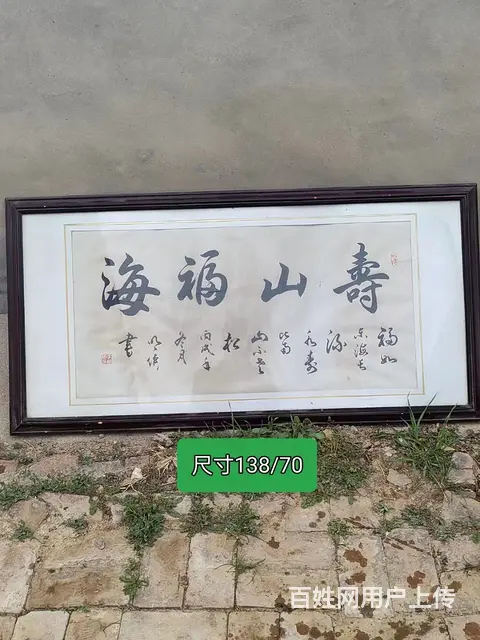 壽山福海
福如
东海长
流
水寿
比南
山不老
松
丙戌年
冬月
书
尺寸138/70
百姓网用户上传